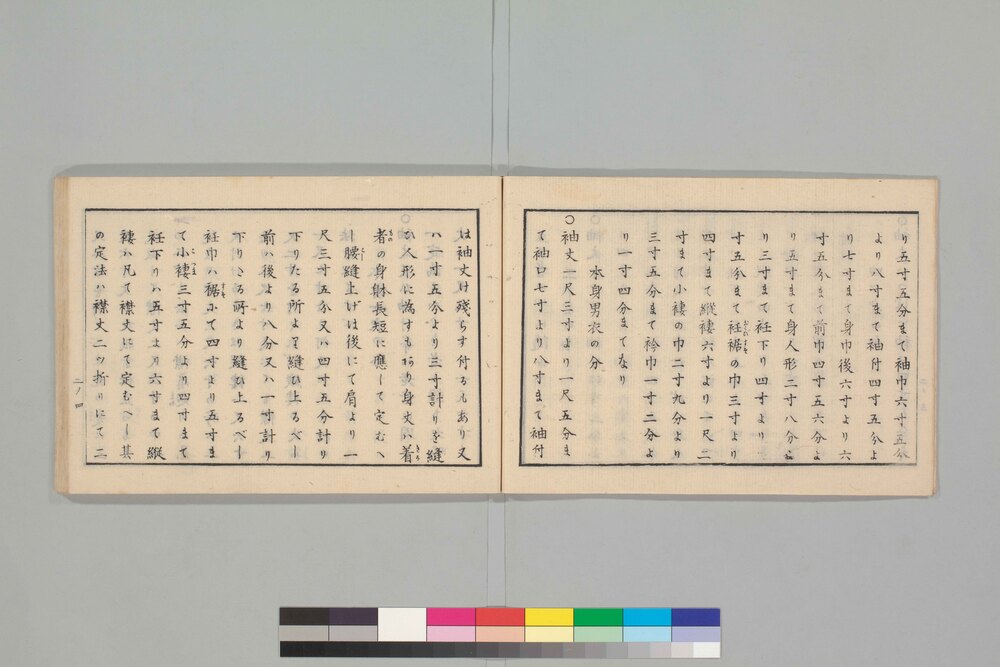 り五寸五分まて袖巾六寸五分
より八寸まて袖付四寸五分よ
り七寸まて身巾後六寸より六
寸五分まて前巾四寸五六分よ
り五寸まて身人形二寸八分よ
り三寸まて衽下り四寸より五
寸五分まて衽裾の巾三寸より
四寸まて縦褄六寸より一尺二
寸まて小褄の巾二寸九分より
三寸五分まて衿巾一寸二分よ
り一寸四分まてなり
○ 本身男衣の分
○袖丈一尺三寸より一尺五分ま
て袖口七寸より八寸まて袖付
は袖丈け残らす付るもあり又
ハ一寸五分より三寸計りを縫
ひ人形に為すもあり身丈ハ着
者の身躰長短に應して定むへ
し腰縫上げは後にて肩より一
尺三寸五分又ハ四寸五分計り
下りたる所より縫ひ上るべし
前ハ後より八分又ハ一寸計り
下りたる所より縫ひ上るべし
衽巾ハ裾にて四寸より五寸ま
て小褄三寸五分より四寸まて
衽下りハ五寸より六寸まて縦
褄ハ凡て襟丈にて定むべし其
の定法ハ襟丈二ツ折りにて二
二ノ四